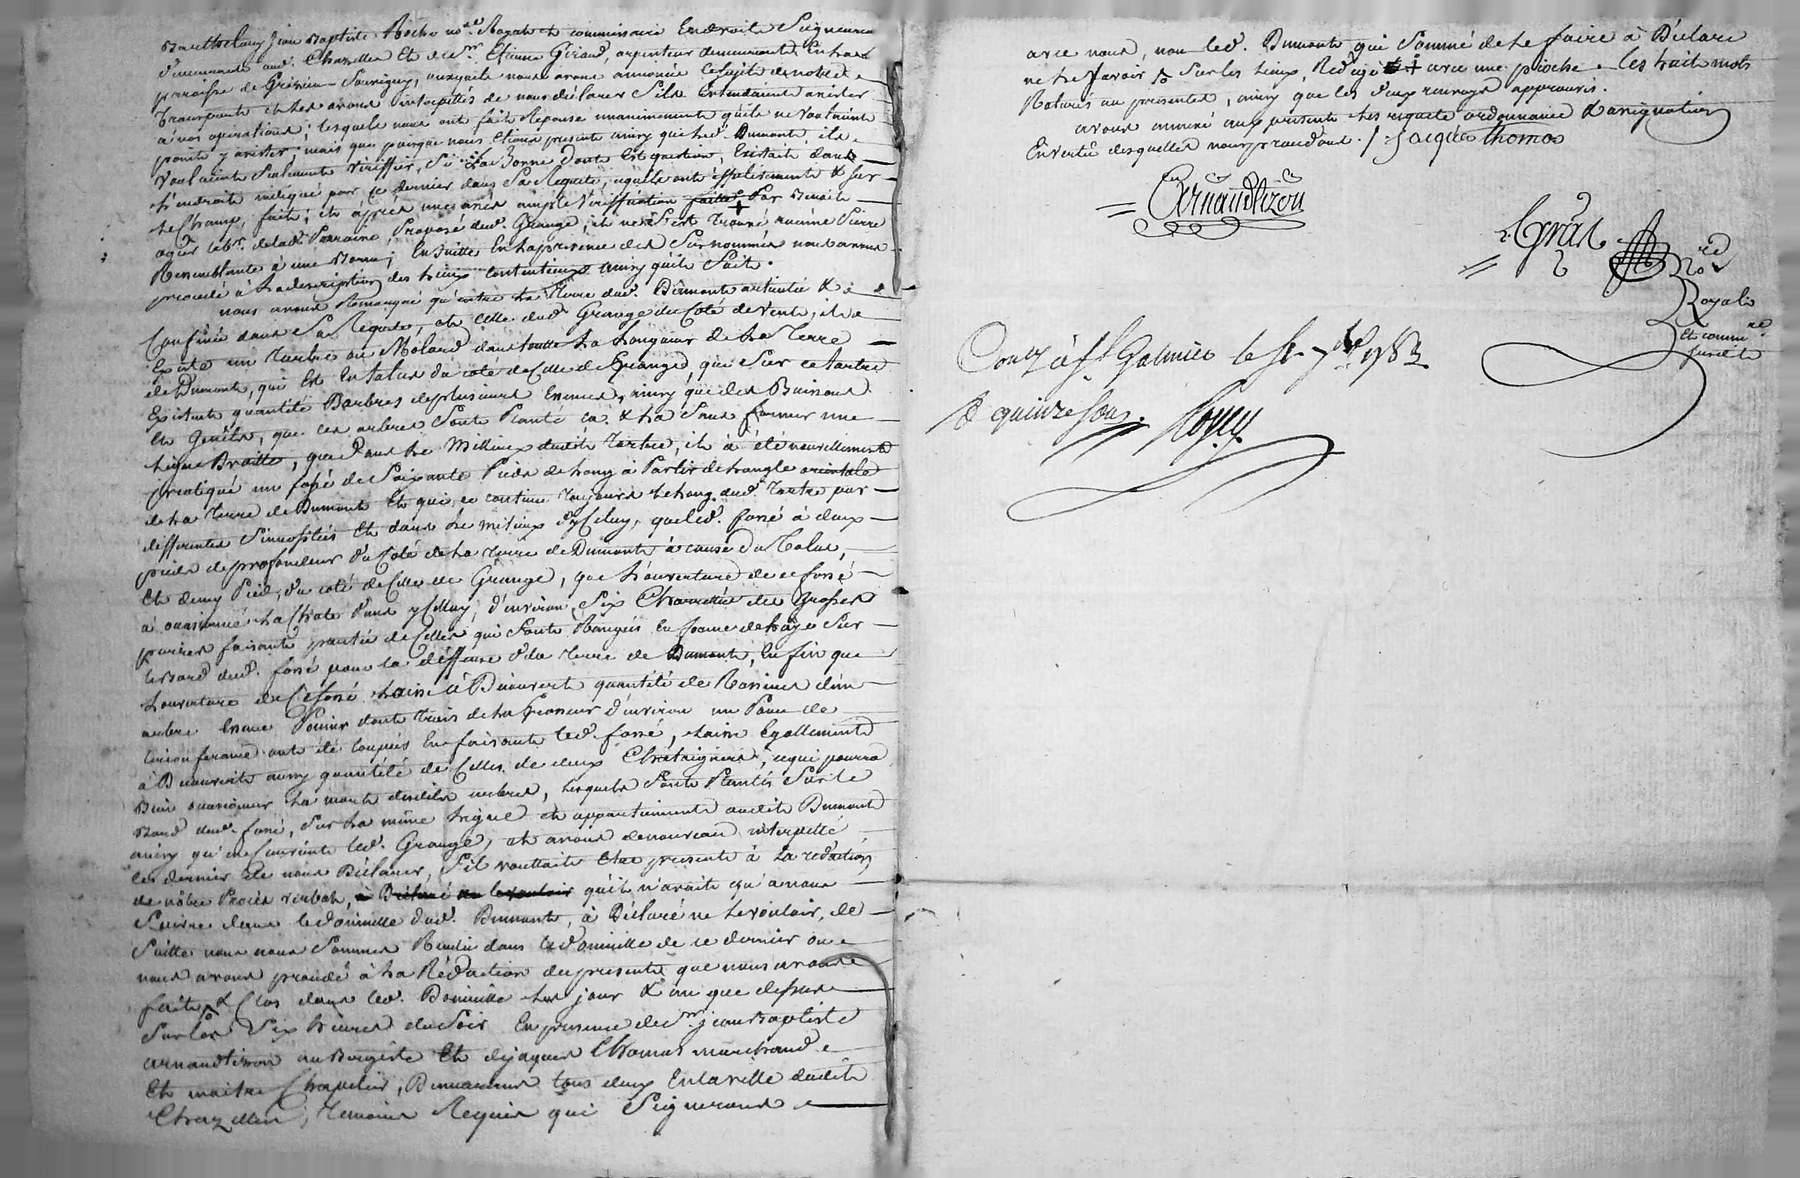 Barthelemy Jean Baptiste Roche no.re Royal et commissaire En droits Seigneuriaux
demeurant aud. Chazelles Et de s.r Etienne Géraud, arpenteur demeurant En la
paroisse de Grézieu Souvigny; auxquels nous avons annoncé le sujet de notre
transport et les avons interpellés de nous déclarer s'ils Entendaient assister
à nos operations; lesquels nous ont fait réponse unanimement qu'ils ne vouloient
point y assister; mais que puisque nous Etions present ainsy que led. Dumont, ils
vouloient seulement vériffier, si La Borne dont Est question, Existait dans
L'endroit indiqué par ce dernier dans sa Requete, à quoy ont effectivement & sur
le Champ, fait; et après une ample vériffication + Par Benoit
agé
Ressemblante à une Borne; Ensuitte En la presence des surnommés nous avons
procedé à la description des lieux Contentieux ainsy qu'il suit.
nous avons Remarqué qu'entre la Terre dud. Dumont articulée &
Confinée dans sa Requete, et celle dud. Grange du Coté de vent, il
Existe un tertre ou Molard dans toutte La Longueur de La Terre
de Dumont, qui Est En talus du coté de Celle de Grange, que sur ce tertre
Existent quantité D'arbres de plusieurs Ensences, ainsy que des Buissons
Et Genêts, que ces arbres sont Planté ça & La sans former une
Ligne Droitte, que Dans le millieu dudit tertre, il à été nouvellement
pratiqué un fossé de soixante Pieds de Long à Partir de L'angle orientale
de La terre de Dumont Et qui se continue toujours le Long dud. tertre par
differentes sinuosités Et dans le milieux d'yCeluy, que led. fossé à deux
pieds de profondeur du Coté de La terre de Dumont à cause du Talus,
Et demy Pied, du coté de Celle de Grange, que L'ouverture de ce fossé
à occasionné La Chute Dans yCelluy, d'environ six Charretées de Grosses
pierres faisant partie de Celles qui sont Rangées En forme de haÿe sur
le Bord dud. fossé pour la deffense de la terre de Dumont, Enfin que
L'ouverture de Ce fossé Laisse à Découvert quantité de Racines d'un
arbre Ensence Poirier dont trois de La Grosseur d'environ un Pouce de
Circonferance ont été Coupées En faisant led. fossé, Laisse Egallement
à Decouvert aussy quantité de Celles de deux Chataigners, ce qui pourra
Bien occasionner La mort desdits arbres, Lesquels sont Plantés sur le
Bord dud. fossé, sur La même Ligne et appartiennent audit Dumont
ainsy qu'en Convient led. Grange, et avons de nouveau interpellé
ces dernier de nous Déclarer, s'il vouttait Etre present à La rédaction
de nôtre Procès verbal, à Déclaré ne le vouloir qu'il n'avait qu'à nous
suivre dans le domicille dud. Dumont, à Déclaré ne Le vouloir, de
suitte nous nous sommes Rendu dans le domicille de ce dernier ou
nous avons procedé à La Rédaction du present que nous avons
fait & Clos dans led. Domicille les jour & an que dessus
sur les six heures du soir En presence de s.r jean Baptiste
arnaudtizon aubergiste Et de jaques Thomas marchand
Et maitre Chapelier, Demeurants tous deux En la ville dudit
Chazelles, Temoins Requis qui Signeront
avec nous, non led. Dumont qui sommé de Le faire à Déclaré
ne Le savoir sur les Lieux, Redigé + avec une pioche. Les huit mots
Raturés au present, ainsy que les deux renvoys approuvés.
avons annexé au present les requete ordonnance & assignation
En vertu desquelles nous procedons. / Jacque thomas
Arnaudtizon
Gras
No.re
Royal
Et comm.re
susdit
Con.le à s.t Galmier le 7.bre 1783
R quinze sous.